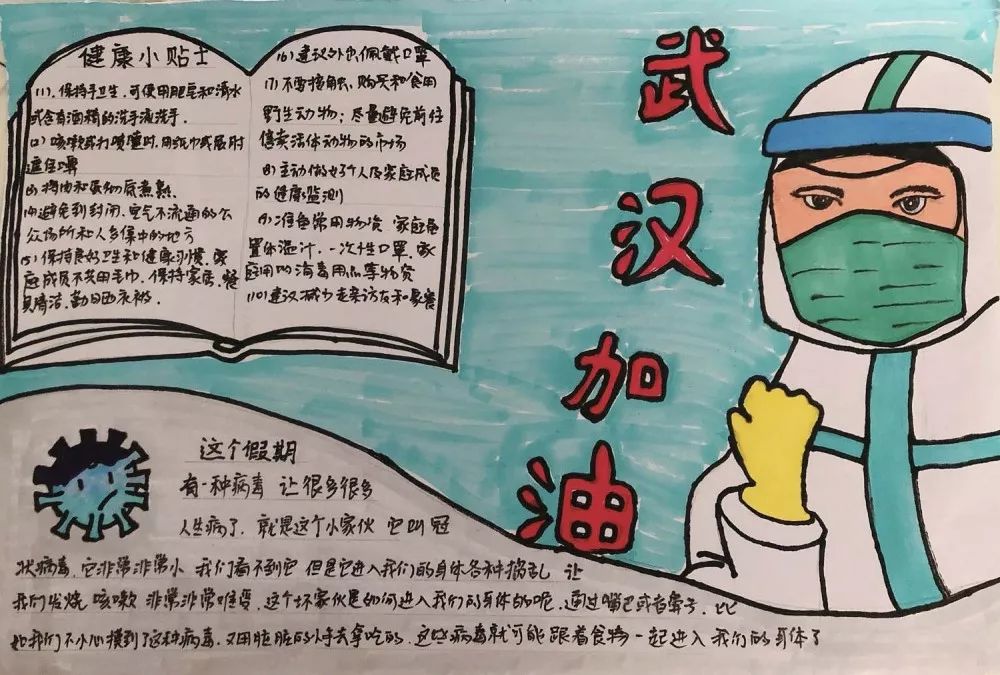 健康小贴士
(1)、保持手卫生，可使用肥皂和清水
或含有酒精的洗手液洗手.
(2) 咳嗽或打喷嚏时，用纸巾或屈肘
遮住口鼻
(3) 将肉和蛋彻底煮熟.
(4)避免到封闭、空气不流通的公
众场所和人多集中的地方
(5) 保持良好卫生和健康习惯，家
庭成员不共用毛巾，保持家居、餐
具清洁，勤晒衣被.
(6) 建议外出佩戴口罩
(7) 不要接触、购买和食用
野生动物；尽量避免前往
售卖活体动物的市场
(8) 主动做好个人及家庭成员
的健康监测
(9) 准备常用物资 家庭备
置体温计，一次性口罩，家
庭用的消毒用品等物资
(10) 建议减少走亲访友和聚餐
武
汉
加
油
这个假期
有一种病毒 让很多很多
人生病了，就是这个小家伙 它叫冠
状病毒，它非常非常小 我们看不到它 但是它进入我们的身体各种捣乱 让
我们发烧 咳嗽 非常非常难受，这个坏家伙是如何进入我们的身体的呢，通过嘴巴或者鼻子，比
如我们不小心摸到了这种病毒，又用脏脏的小手去拿吃的，这些病毒就可能跟着食物一起进入我们的身体了